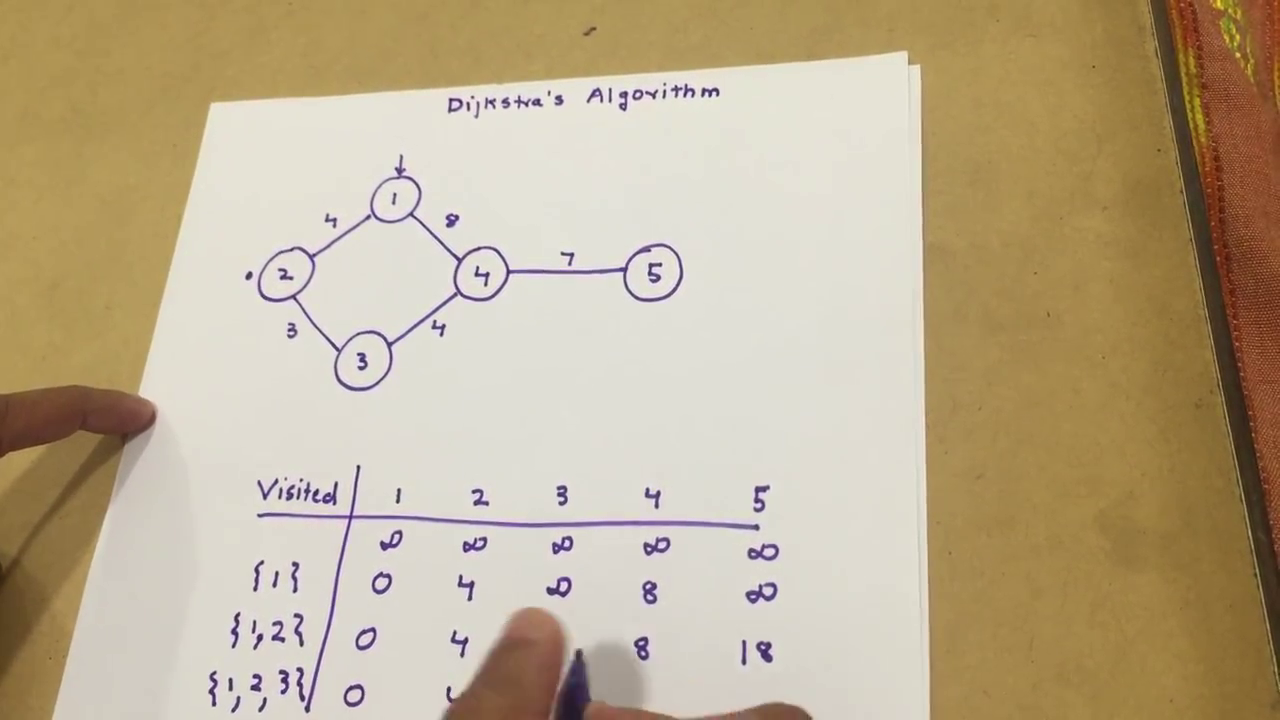 Dijkstra's Algorithm
1
4 8
2 4 7 5
3 4
3
Visited 1 2 3 4 5
∞ ∞ ∞ ∞ ∞
{1} 0 4 ∞ 8 ∞
{1,2} 0 4 8 18
{1,2,3} 0